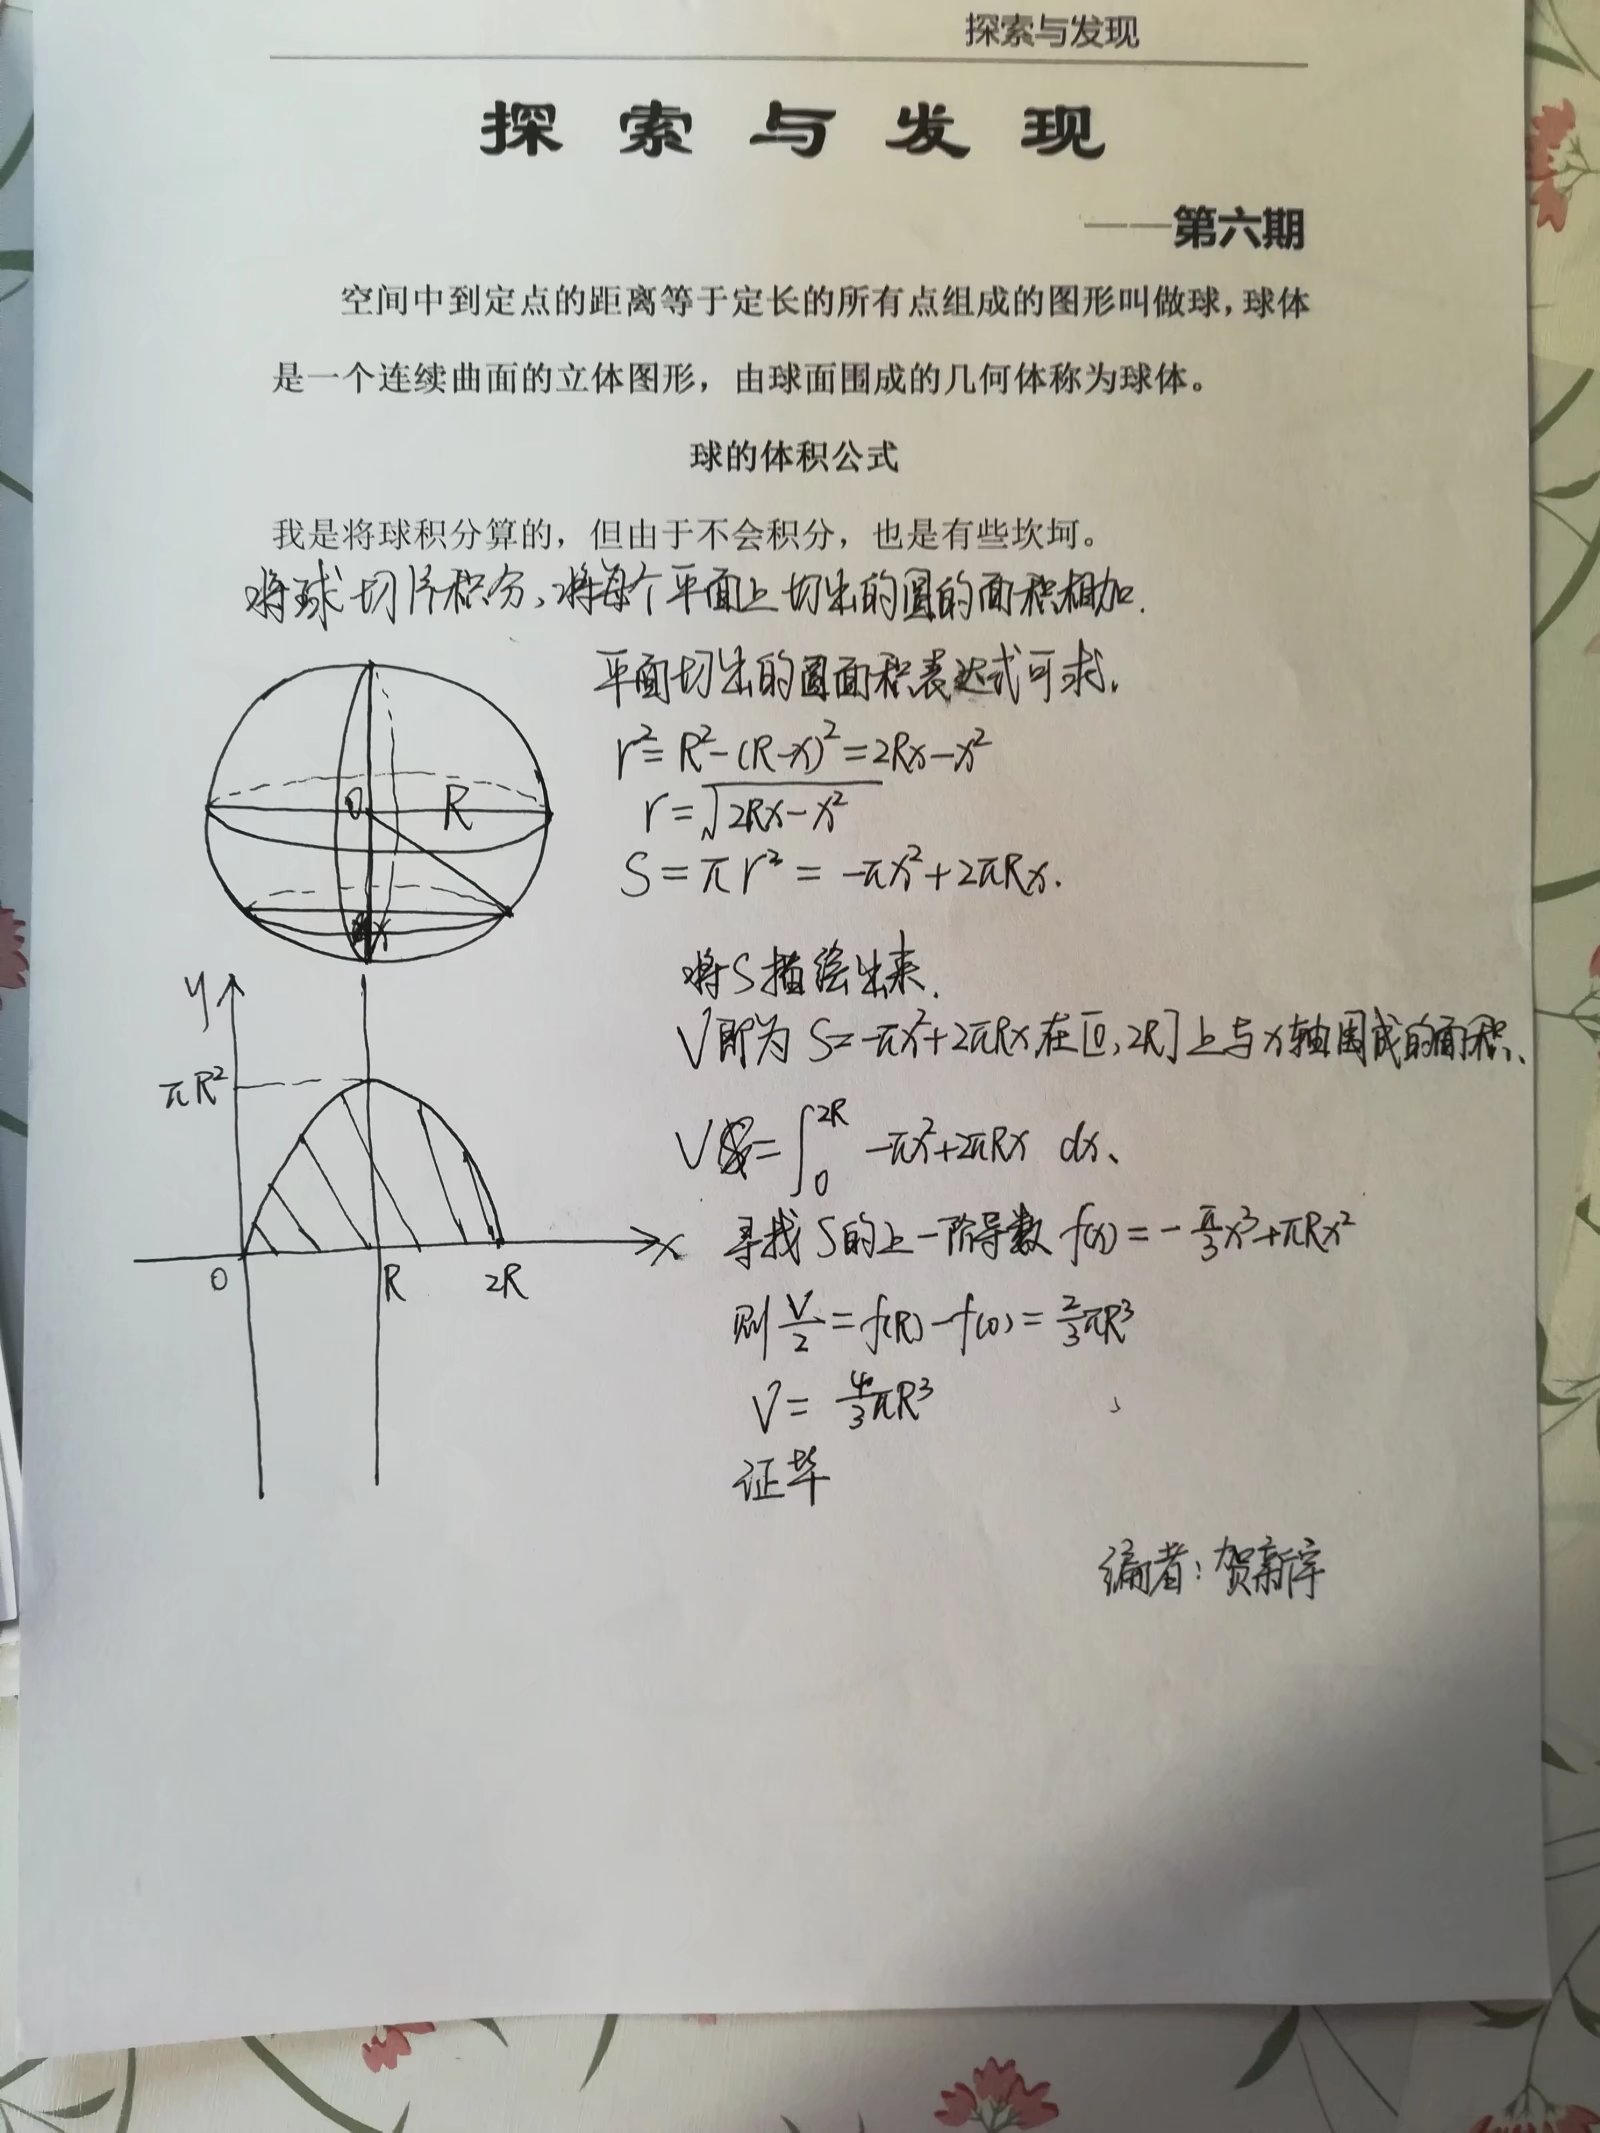 探索与发现
探索与发现
——第六期
空间中到定点的距离等于定长的所有点组成的图形叫做球,球体
是一个连续曲面的立体图形，由球面围成的几何体称为球体。
球的体积公式
我是将球积分算的，但由于不会积分，也是有些坎坷。
将球切片积分，将每个平面上切出的圆的面积相加.
平面切出的圆面积表达式可求.
r²=R²-(R-x)²=2Rx-x²
O R
r=√(2Rx-x²)
S=πr²=-πx²+2πRx.
x
将S描绘出来.
y
V即为S=-πx²+2πRx在[0,2R]上与x轴围成的面积.
πR²
V=∫₀²ᴿ -πx²+2πRx dx、
寻找S的上一阶导数f(x)=-π/3x³+πRx²
x
O R 2R
则V/2=f(R)-f(0)=2/3πR³
V=4/3πR³
证毕
编者:贺新宇